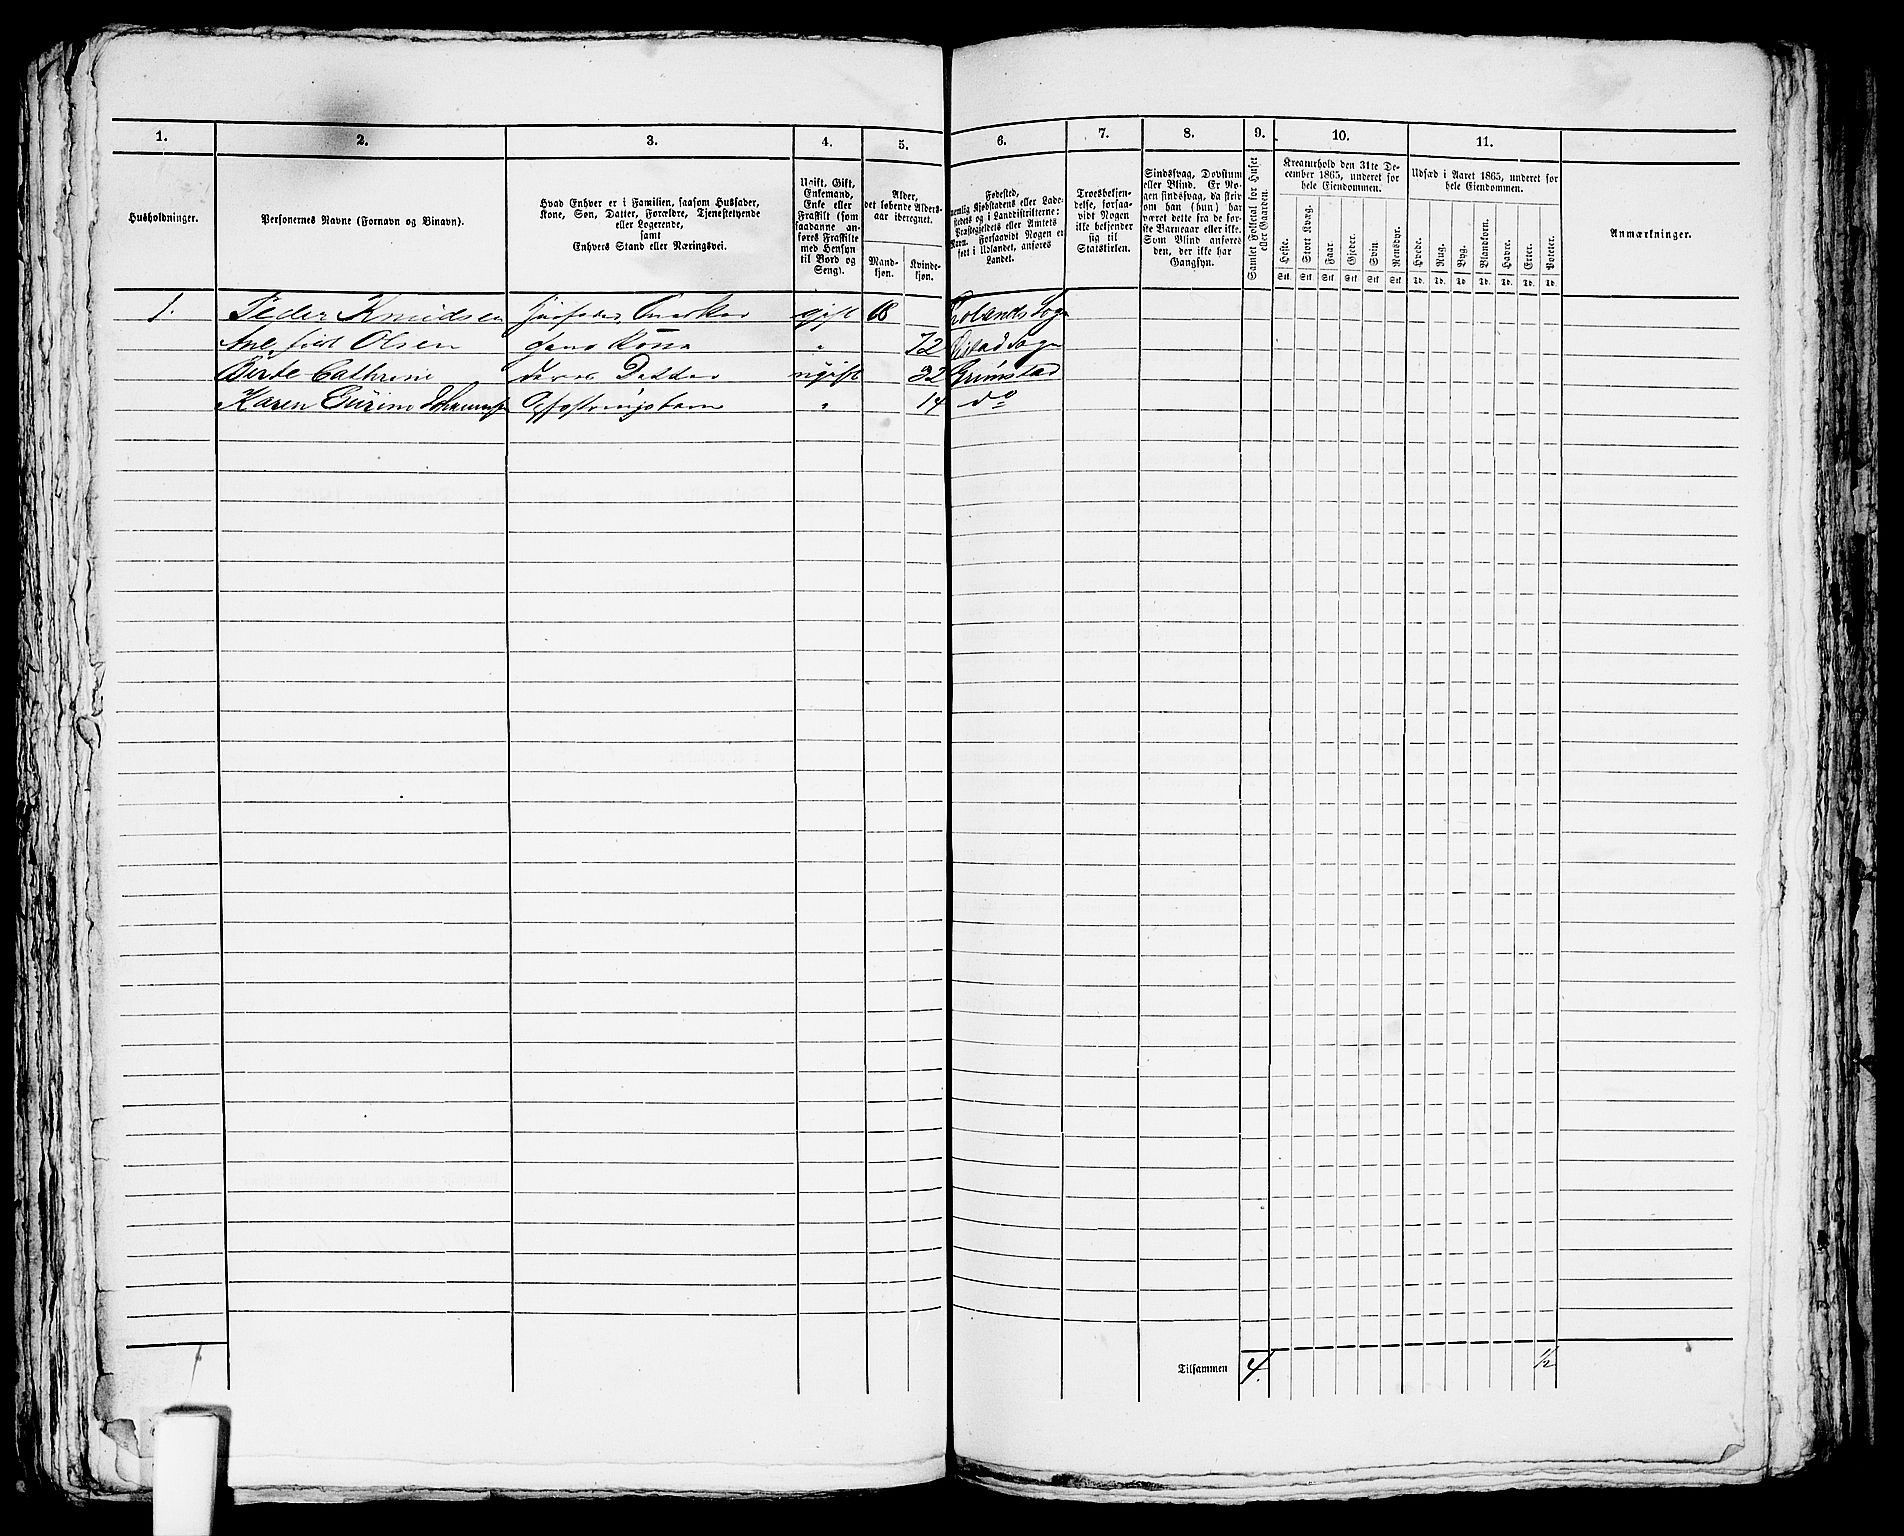 1. 2. 3. 4. 5. 6. 7. 8. 9. 10. 11.
Husholdninger.
Personernes Navne (Fornavn og Binavn).
Hvad Enhver er i Familien, saasom Husfader,
Kone, Søn, Datter, Forældre, Tjenestetyende
eller Logerende,
samt
Enhvers Stand eller Næringsvei.
Ugift, Gift,
Enkemand,
Enke eller
Fraskilt (som
saadanne an-
føres Fraskilte
med Hensyn
til Bord og
Seng).
Alder,
det løbende Alders-
aar iberegnet.
Mand-
kjøn.
Kvinde-
kjøn.
Fødested,
nemlig Kjøbstadens eller Lade-
stedets og i Landdistrikterne:
Præstegjeldets eller Amtets
Navn. Forsaavidt Nogen er
født i Udlandet, anføres
Landet.
Troesbekjen-
delse, forsaa-
vidt Nogen
ikke bekjender
sig til
Statskirken.
Sindssvag, Døvstum
eller Blind. Er No-
gen sindssvag, da skriv
om han (hun) har
været dette fra de før-
ste Barneaar eller ikke.
Som Blind anføres
den, der ikke har
Gangsyn.
Samlet Folketal for Huset
eller Gaarden.
Kreaturhold den 31te De-
cember 1865, underet for
hele Eiendommen.
Heste. Stort Kvæg. Faar. Gjeder. Svin. Rensdyr.
Stk. Stk. Stk. Stk. Stk. Stk.
Udsæd i Aaret 1865, underet for
hele Eiendommen.
Hvede. Rug. Byg. Blandkorn. Havre. Erter. Poteter.
Td. Td. Td. Td. Td. Td. Td.
Anmærkninger.
1. Peder Knudsen Huusfader gift 68 Sogn
Olsen hans Kone " 72 Sogn
Birte Cathrine deres Datter ugift 32 Grimstad
Karen " 14 do
Tilsammen 4. 1/2